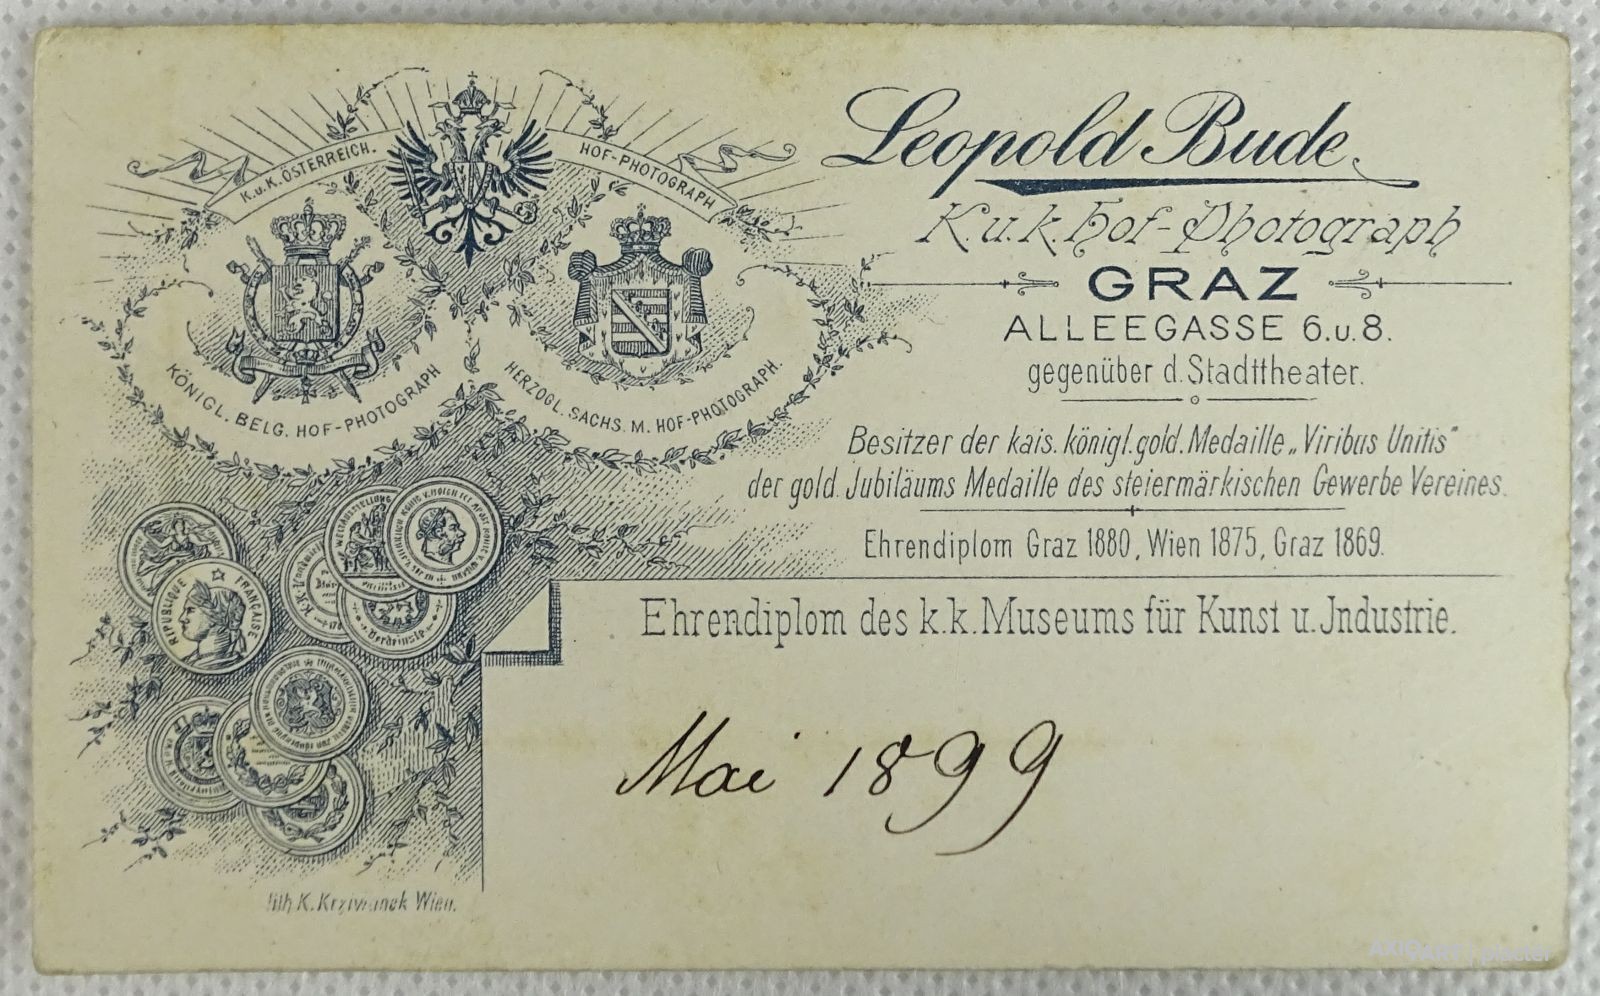 K.u.K. ÖSTERREICH.
HOF-PHOTOGRAPH
KÖNIGL. BELG. HOF-PHOTOGRAPH
HERZOGL. SACHS. M. HOF-PHOTOGRAPH.
Leopold Bude,
K.u.k. Hof-Photograph
GRAZ
ALLEEGASSE 6.u.8.
gegenüber d. Stadttheater.
Besitzer der kais. königl. gold. Medaille „Viribus Unitis“
der gold. Jubiläums Medaille des steiermärkischen Gewerbe Vereines.
Ehrendiplom Graz 1880, Wien 1875, Graz 1869.
Ehrendiplom des k.k. Museums für Kunst u. Jndustrie.
WELTAUSSTELLUNG
REPUBLIQUE FRANCAISE
Verdienste
Mai 1899
lith K. Krziwanek Wien.